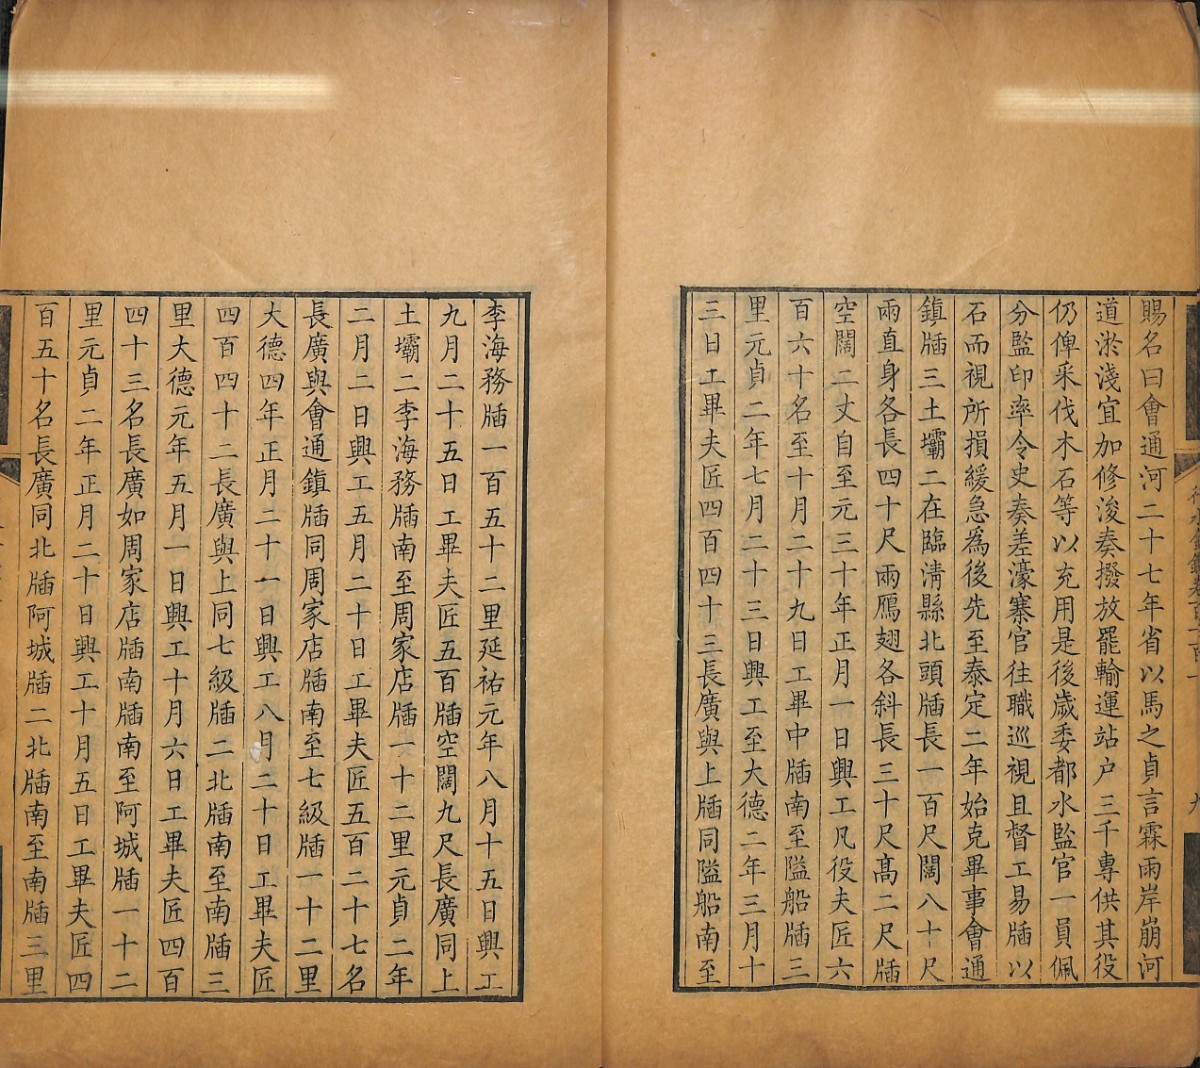 賜名曰會通河二十七年省以馬之貞言霖雨岸崩河
道淤淺宜加修浚奏撥放罷輸運站户三千專供其役
仍俾采伐木石等以充用是後歲委都水監官一員佩
分監印率令史奏差濠寨官往職巡視且督工易牐以
石而視所損緩急為後先至泰定二年始克畢事會通
鎮牐三土壩二在臨清縣北頭牐長一百尺闊八十尺
兩直身各長四十尺兩鴈翅各斜長三十尺髙二尺牐
空闊二丈自至元三十年正月一日興工凡役夫匠六
百六十名至十月二十九日工畢中牐南至隘船牐三
里元貞二年七月二十三日興工至大德二年三月十
三日工畢夫匠四百四十三長廣與上牐同隘船南至
李海務牐一百五十二里延祐元年八月十五日興工
九月二十五日工畢夫匠五百牐空闊九尺長廣同上
土壩二李海務牐南至周家店牐一十二里元貞二年
二月二日興工五月二十日工畢夫匠五百二十七名
長廣與會通鎮牐同周家店牐南至七級牐一十二里
大德四年正月二十一日興工八月二十日工畢夫匠
四百四十二長廣與上同七級牐二北牐南至南牐三
里大德元年五月一日興工十月六日工畢夫匠四百
四十三名長廣如周家店牐南牐南至阿城牐一十二
里元貞二年正月二十日興工十月五日工畢夫匠四
百五十名長廣同北牐阿城牐二北牐南至南牐三里